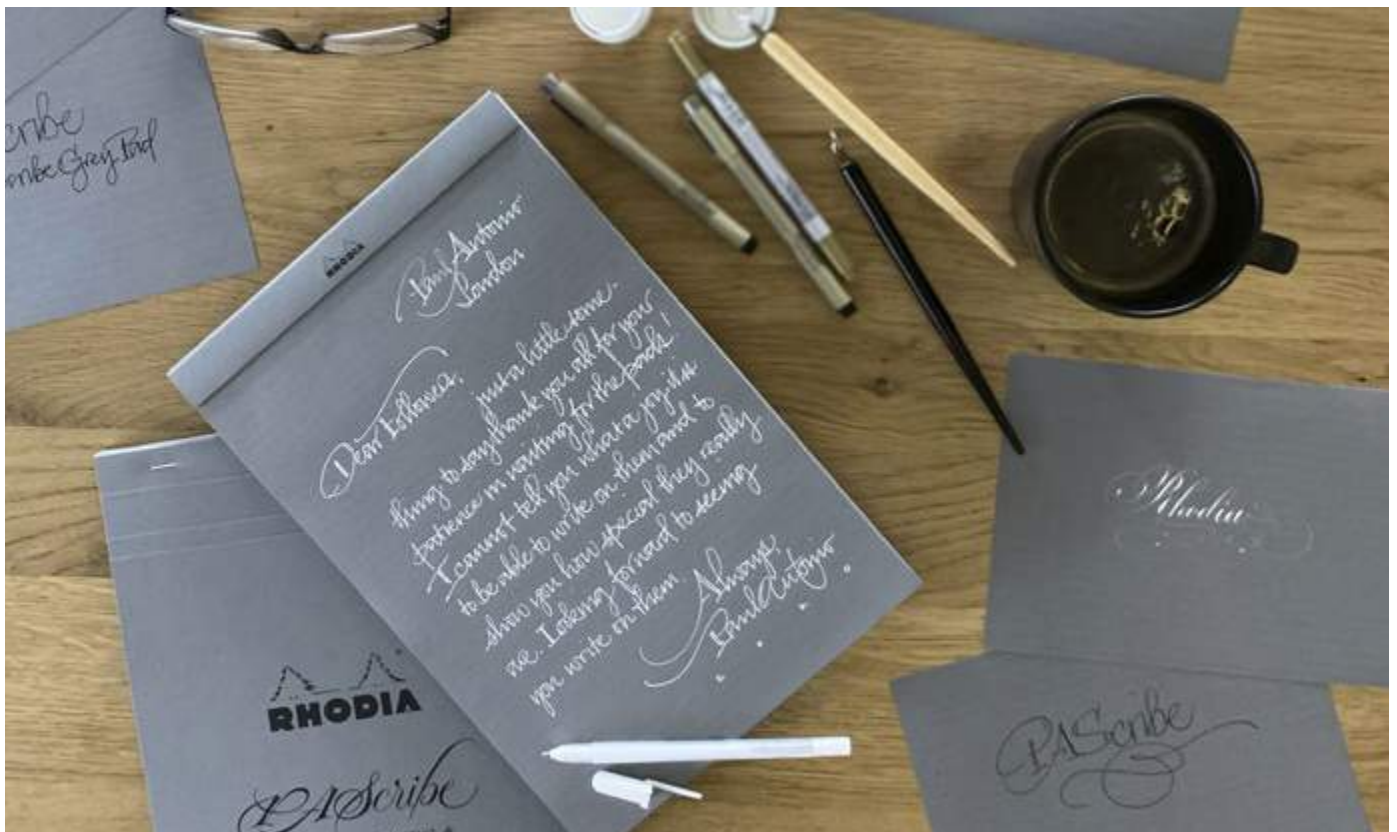 cribe
cribe Grey Pad
RHODIA
Paul Antonio
London
Dear Followers,
just a little some-
thing to say thank you all for your
patience in waiting for the pads!
I cannot tell you what a joy it is
to be able to write on them and to
show you how special they really
are. Looking forward to seeing
you write on them.
Always,
Paul Antonio
RHODIA
PAScribe
Rhodia
PAScribe